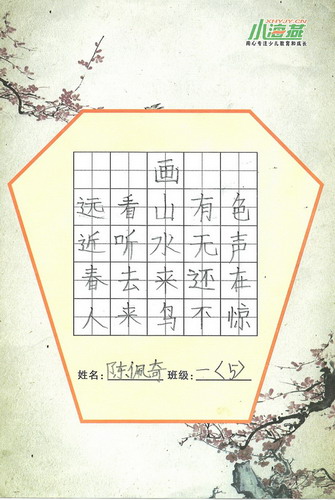 XHYJY.CN
小海燕
用心专注少儿教育和成长
画
远看山有色
近听水无声
春去来还在
人来鸟不惊
姓名:陈佩奇 班级:一〈5〉